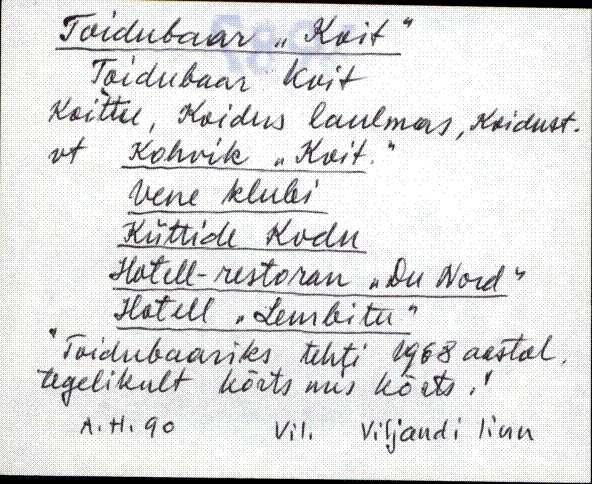 Toidubaar „Koit“
Toidubaar Koit
Koittu, Koidus laulmas, Koidust.
vt Kohvik „Koit.“
Vene klubi
Küttide Kodu
Hotell-restoran „Du Nord“
Hotell „Lembitu“
"Toidubaariks tehti 1968 aastal.
tegelikult kõrts mis kõrts."
A.H. 90 Vil. Viljandi linn